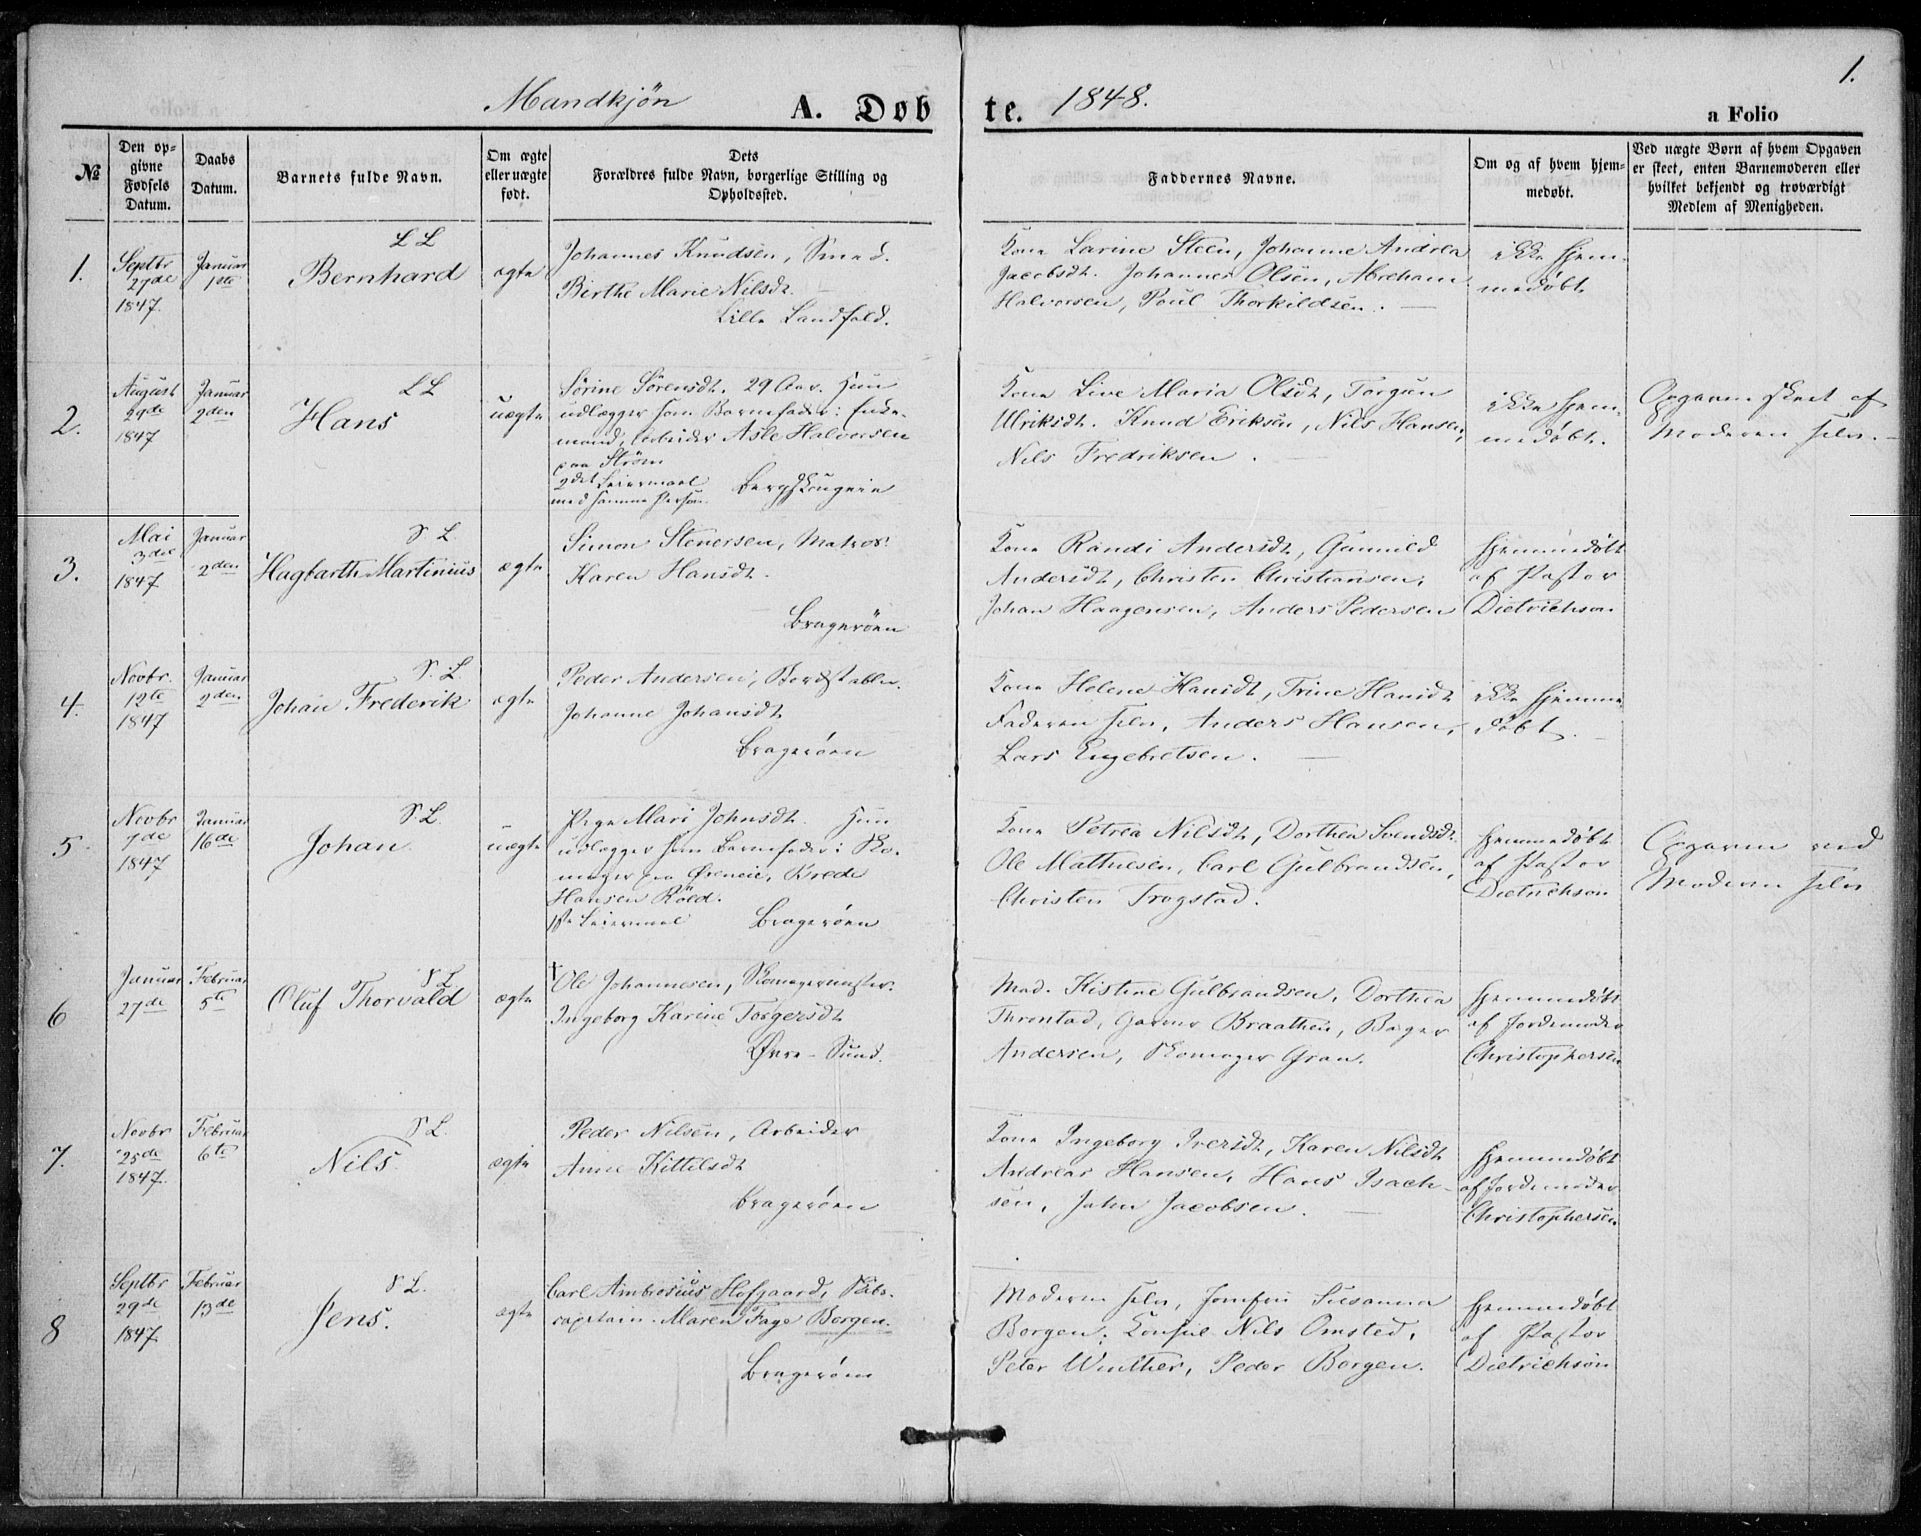 1.
Mandkjön A. Døbte. 1848. a Folio
№
Den opgivne Fødsels Datum.
Daabs Datum.
Barnets fulde Navn.
Om ægte eller uægte født.
Dets Forældres fulde Navn, borgerlige Stilling og Opholdssted.
Faddernes Navne.
Om og af hvem hjemmedøbt.
Ved uægte Børn af hvem Opgaven er skeet, enten Barnemoderen eller hvilket bekjendt og troværdigt Medlem af Menigheden.
1.
Septbr
27de
1847.
Januar
1ste
L L
Bernhard
ægte
Johannes Knudsen, Smed.
Birthe Marie Nilsdt.
Lille Landfald.
Kone Larine Steen, Johanne Andrea
Jacobsdt. Johannes Olsen, Abraham
Halvorsen, Poul Thorkildsen.
ikke hjem-
medøbt
2.
August
29de
1847
Januar
2den
L L
Hans
uægte
Sörine Sörensdt. 29 Aar. Hun
udlægger som Barnefader: Enke-
mand, Arbeider Asle Halvorsen
paa Ström
2det Leiermaal
med samme Person.
Bergskougeie
Kone Live Maria Olsdt, Torgun
Ulriksdt. Knud Eriksen, Nils Hansen,
Nils Fredriksen.
ikke hjem-
medøbt.
Opgaven skeet af
Moderen selv.
3.
Mai
3die
1847
Januar
2den
S L.
Hagbarth Martinius
ægte
Simon Stenersen, Matros.
Karen Hansdt.
Brageröen
Kone Randi Andersdt, Gunnild
Andersdt, Christen Christiansen,
Johan Haagensen, Anders Pedersen
hjemmedøbt
af Pastor
Dietrichson
4.
Novbr.
12te
1847
Januar
2den
S. L.
Johan Frederik
ægte
Peder Andersen, Bordstabler.
Johanne Johansdt
Brageröen
Kone Helene Hansdt, Trine Hansdt
Faderen selv, Anders Hansen,
Lars Engebretsen.
ikke hjemme-
døbt.
5.
Novbr
7de
1847
Januar
16de
S. L.
Johan.
uægte
Pige Mari Johnsdt. Hun
udlægger som Barnefader: Sko-
mager paa Øreneie, Brede
Hansen Röed.
1ste Leiermaal
Bragerøen
Kone Petrea Nilsdt, Dorthea Svendsdt.
Ole Mathiesen, Carl Gulbrandsen,
Christen Trogstad.
hjemmedøbt
af Pastor
Dietrichson
Opgaven ved
Moderen selv
6
Januar
27de
Februar
5te
S L
Oluf Thorvald
ægte
Ole Johannesen, Skomagermester.
Ingeborg Karine Torgersdt
Øvre-Sund.
Mad. Kistine Gulbrandsen, Dorthea
Thronstad, Garver Braathen, Bager
Andersen, Skomager Gran.
hjemmedøbt
af Jordemoder
Christophersen
7.
Novbr
25de
1847.
Februar
6te
S L.
Nils.
ægte
Peder Nilsen, Arbeider
Anne Kittelsdt
Bragerøen
Kone Ingeborg Iversdt, Karen Nilsdt
Andreas Hansen, Hans Isach-
sen, John Jacobsen.
hjemmedøbt
af Jordemoder
Christophersen
8
Septbr
29de
1847
Februar
13de
S L.
Jens.
ægte
Carl Ambrosius Hofgaard, Skibs-
capitain. Maren Faye Borgen.
Bragerøen
Moderen selv, Jomfru Susanna
Borgen, Konsul Nils Omsted,
Peter Winther, Peder Borgen.
hjemmedøbt
af Pastor
Dietrichson